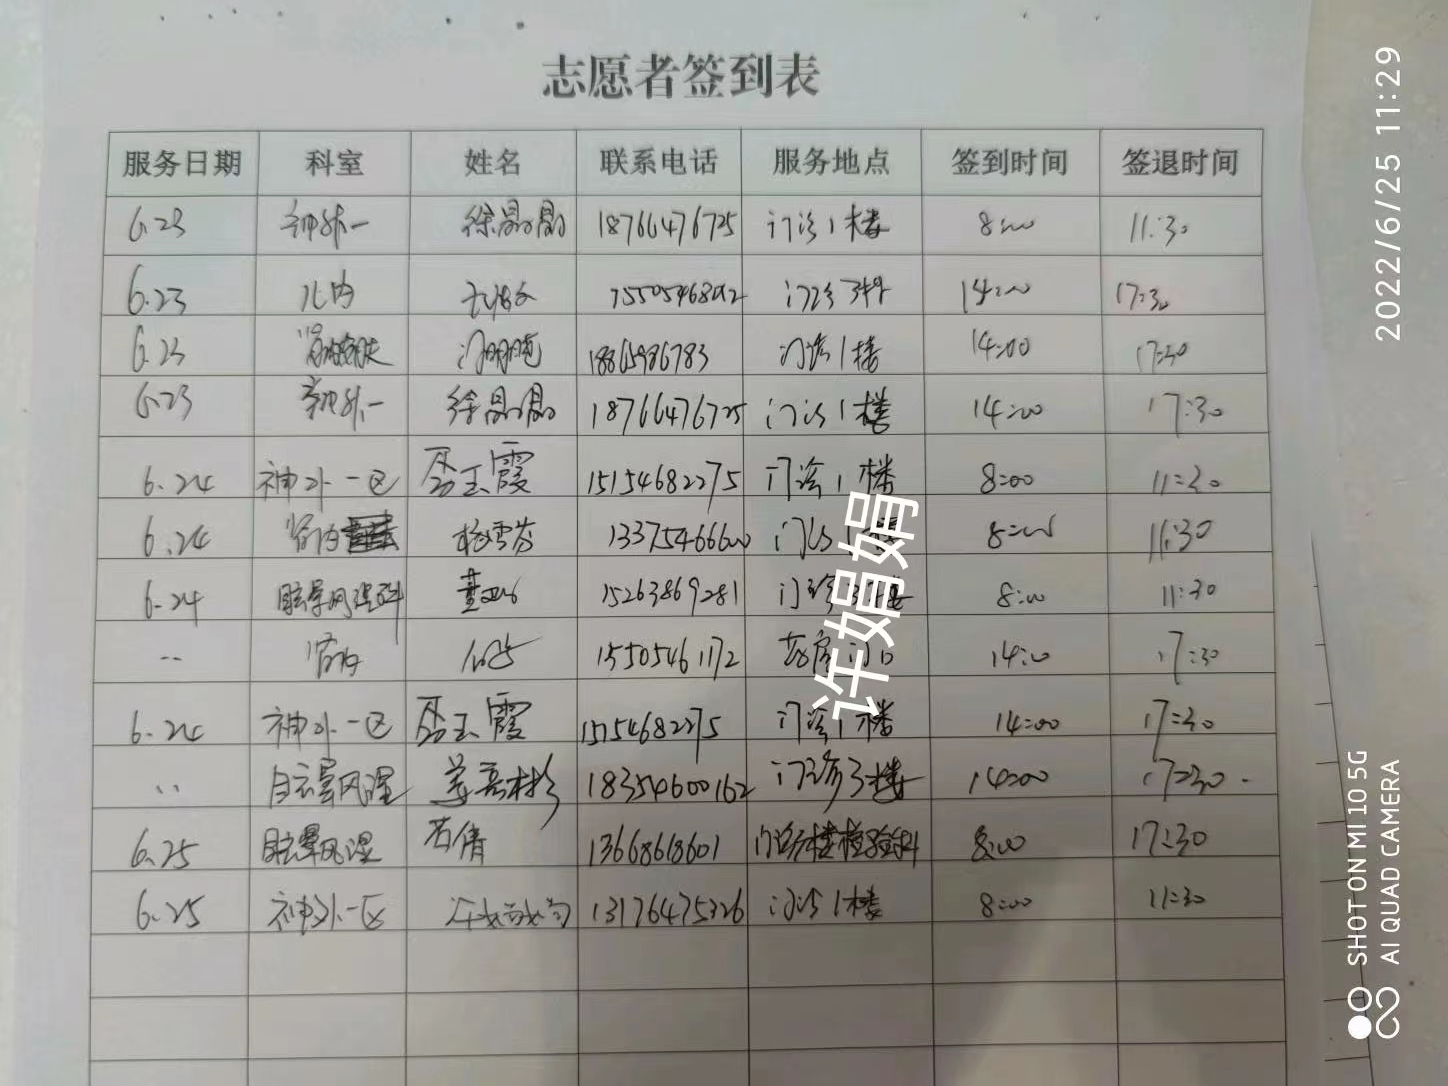 志愿者签到表
服务日期 科室 姓名 联系电话 服务地点 签到时间 签退时间
6.23 神外一 徐晶晶 18766476725 门诊1楼 8:00 11:30
6.23 儿内 门诊3楼 14:00 17:30
6.23 18865986783 门诊1楼 14:00 17:30
6.23 神外一 徐晶晶 18766476725 门诊1楼 14:00 17:30
6.24 神外一区 玉霞 15154682275 门诊1楼 8:00 11:30
6.24 肾内 杨雪芬 13375466600 门诊1楼 8:00 11:30
6.24 眩晕风湿科 15263869281 门诊3楼 8:00 11:30
肾内 15505461172 药房门口 14:00 17:30
6.24 神外一区 玉霞 15154682275 门诊1楼 14:00 17:30
眩晕风湿 18354600162 门诊3楼 14:00 17:30
6.25 眩晕风湿 若倩 13668668601 门诊楼检验科 8:00 17:30
6.25 神外一区 许娟娟 13176475326 门诊1楼 8:00 11:30
许娟娟
2022/6/25 11:29
SHOT ON MI 10 5G
AI QUAD CAMERA